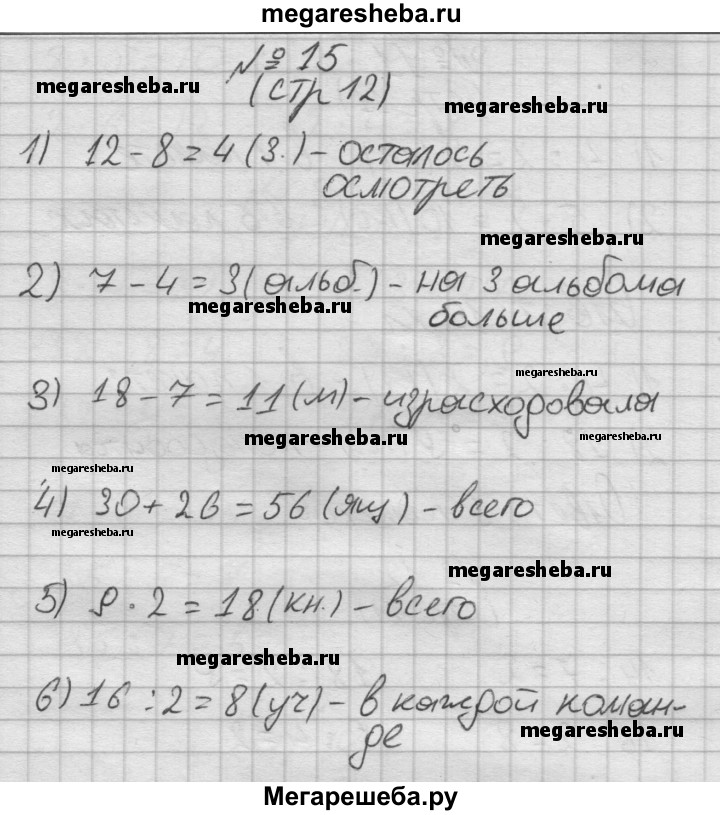 megaresheba.ru
№ 15
megaresheba.ru (стр 12) megaresheba.ru
1) 12 - 8 = 4 (З.) - осталось
осмотреть
megaresheba.ru
2) 7 - 4 = 3 (альб.) - на 3 альбома
megaresheba.ru больше
megaresheba.ru
3) 18 - 7 = 11 (м) - израсходовала
megaresheba.ru megaresheba.ru
megaresheba.ru
4) 30 + 26 = 56 (ящ) - всего
megaresheba.ru
megaresheba.ru
5) 9 · 2 = 18 (кн.) - всего
megaresheba.ru
6) 16 : 2 = 8 (уч) - в каждой коман-
де megaresheba.ru
Мегарешеба.ру